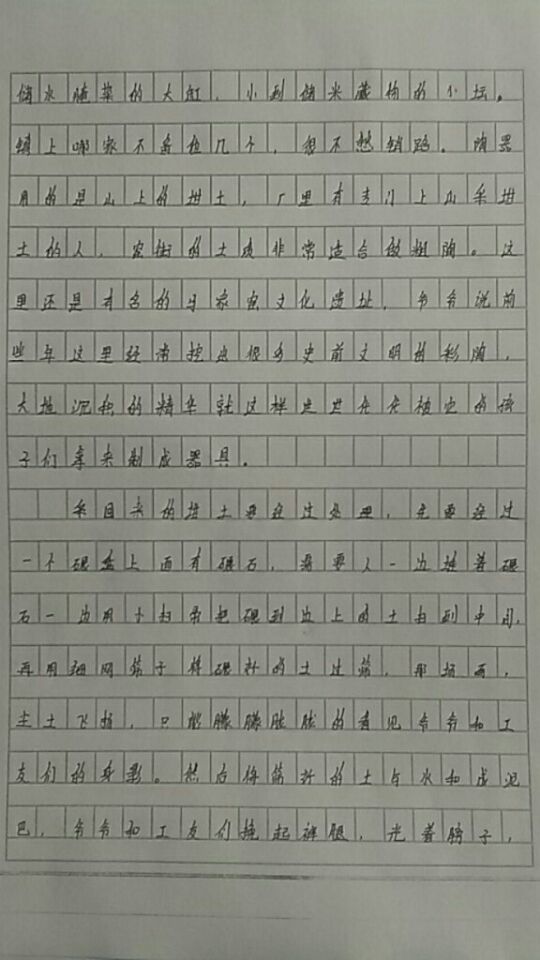 储水腌菜的大缸，小到储米藏物的小坛。
镇上哪家不备他几个，很不愁销路。陶器
用的是山上的坩土，厂里有专门上山采坩
土的人，窑街的土质非常适合做粗陶。这
里还是有名的马家窑文化遗址，爷爷说前
些年这里经常挖出很多史前文明的彩陶，
大地沉积的精华就这样世世代代被它的孩
子们拿来制成器具。
采回来的坩土要经过处理，先要经过
一个碾盘上面有碾石，需要人一边推着碾
石一边用小扫帚把碾到边上的土扫到中间，
再用细网筛子将碾好的土过筛，那场面，
尘土飞扬，只能朦朦胧胧的看见爷爷和工
友们的身影。然后将筛好的土与水和成泥
巴，爷爷和工友们挽起裤腿，光着膀子，